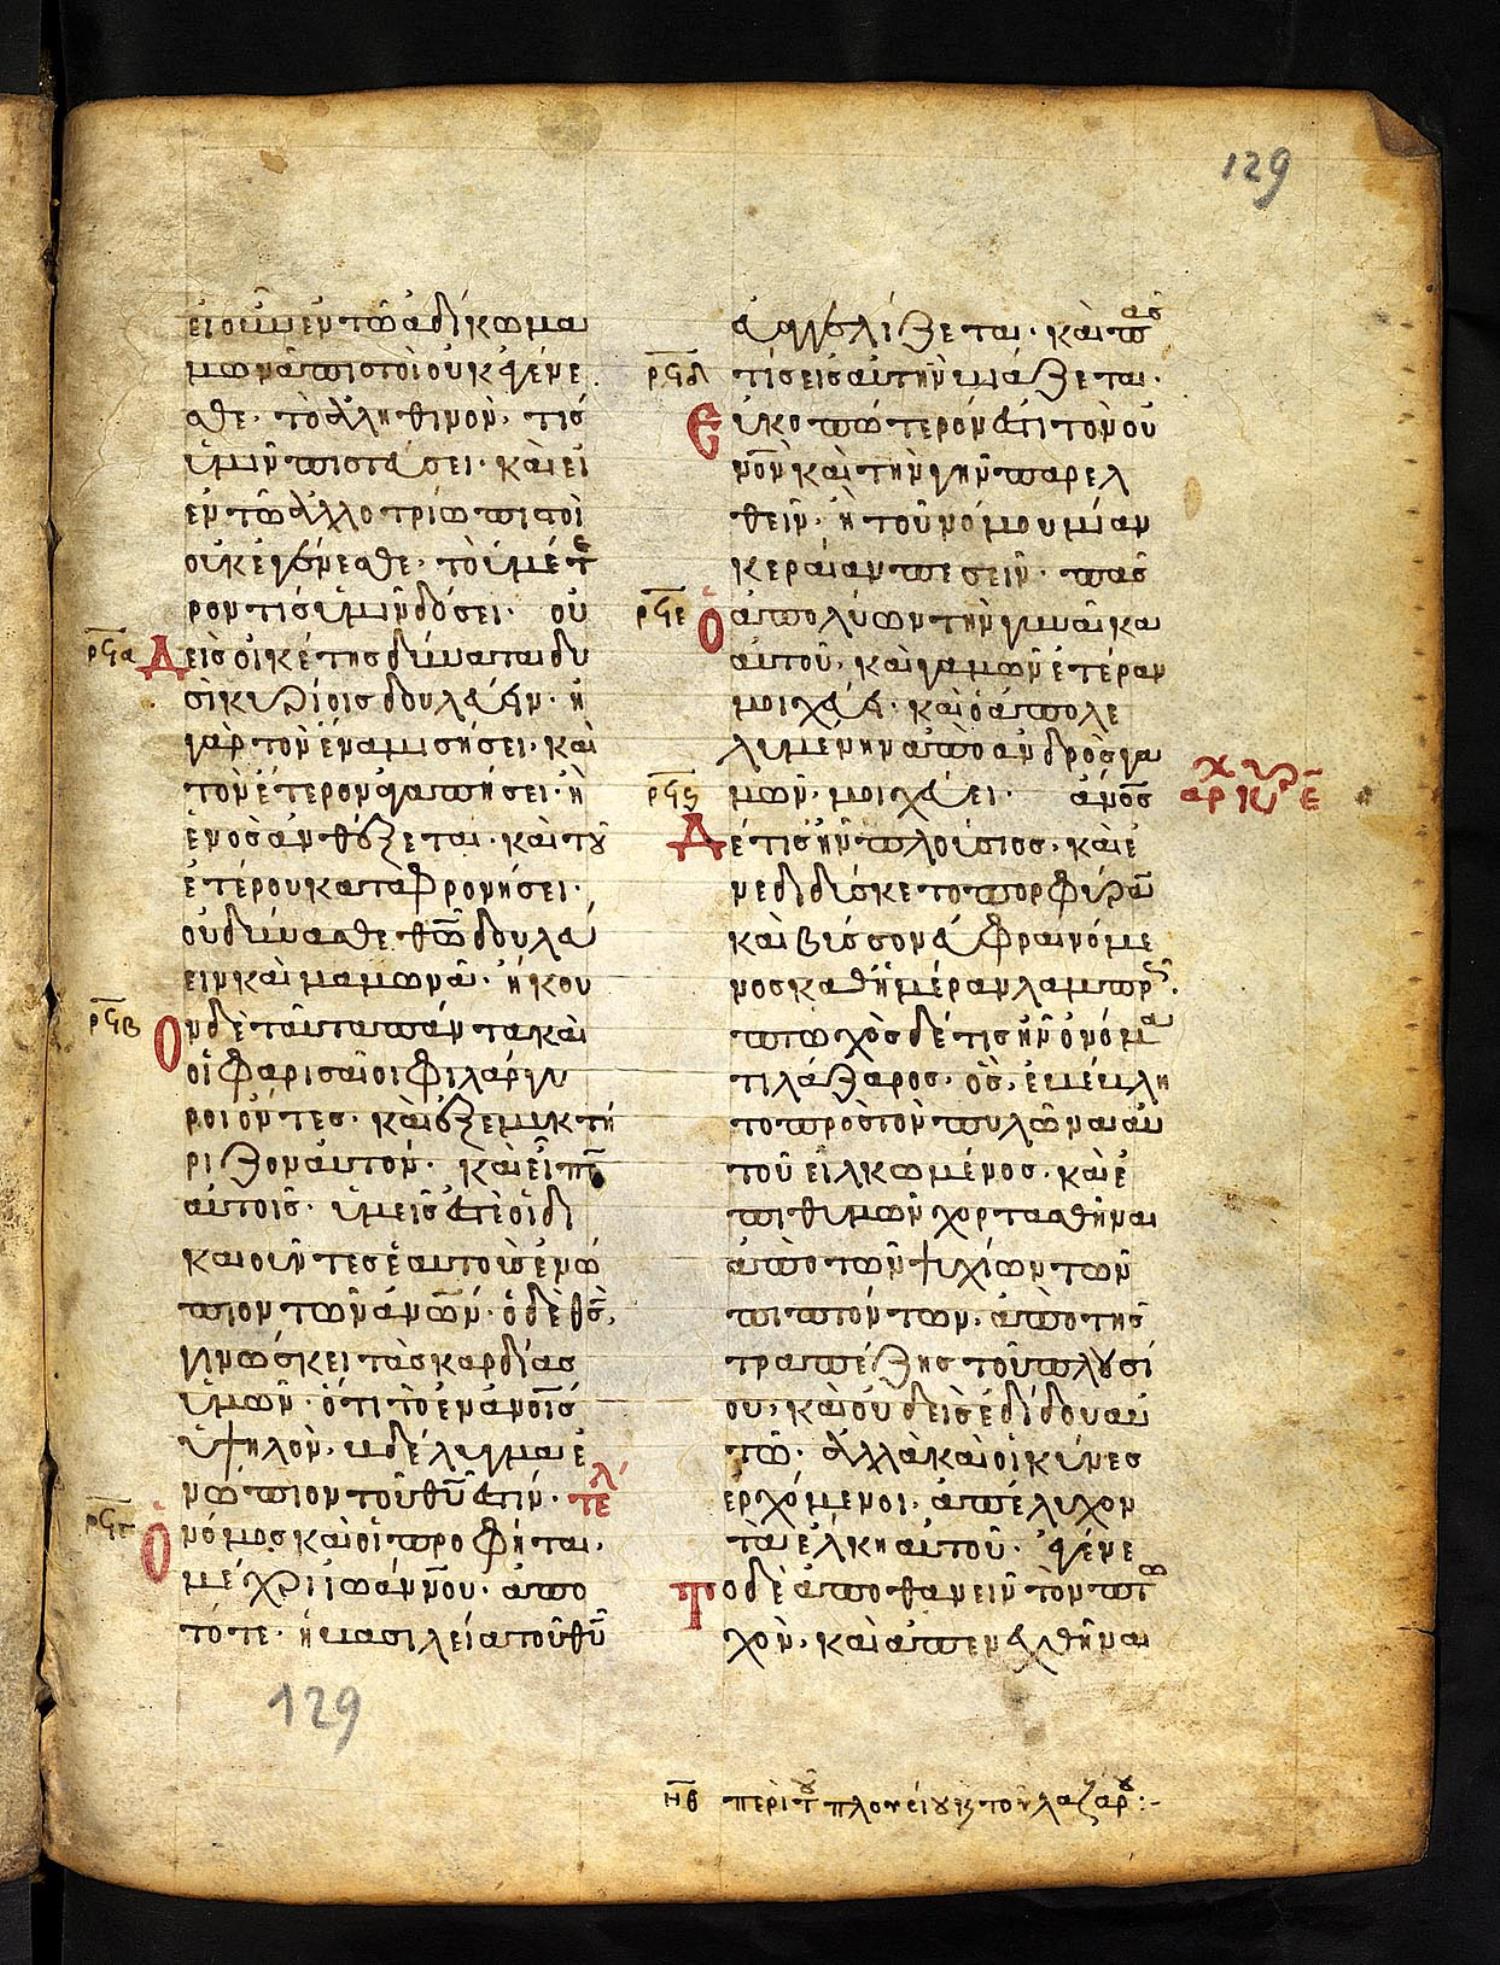 129
εἰ οὖν ἐν τῶ ἀδίκω μα
μωνᾶ πιστοὶ οὐκ ἐγένε
σθε· τὸ ἀληθινὸν, τίς
ὑμῖν πιστεύσει· καὶ εἰ
ἐν τῶ ἀλλοτρίω πιστοὶ
οὐκ ἐγένεσθε· τὸ ὑμέτε
ρον τίς ὑμῖν δώσει· οὐ
ρϟα Δεὶς οἰκέτης δύναται δυ
σὶ κυρίοις δουλεύειν· ἢ
γὰρ τὸν ἕνα μισήσει· καὶ
τὸν ἕτερον ἀγαπήσει· ἢ
ἑνὸς ἀνθέξεται· καὶ τοῦ
ἑτέρου καταφρονήσει·
οὐ δύνασθε θῶ δουλεύ
ειν καὶ μαμωνᾶ· ἤκου
ρϟβ Ον δὲ ταῦτα πάντα καὶ
οἱ φαρισαῖοι φιλάργυ
ροι ὄντες· καὶ ἐξεμυκτή
ριζον αὐτόν· καὶ εἶπεν
αὐτοῖς· ὑμεῖς ἐστὲ οἱ δι
καιοῦντες ἑαυτοὺς ἐνώ
πιον τῶν ἀνων· ὁ δὲ θς,
γινώσκει τὰς καρδίας
ὑμῶν· ὅτι τὸ ἐν ἀνοις
ὑψηλὸν, βδέλυγμα ἐ
νώπιον τοῦ θυ ἐστίν· τελ
ρϟγ Ὁ νόμος καὶ οἱ προφῆται,
μέχρι ἰωάννου· ἀπο
τότε· ἡ βασιλεία τοῦ θυ
εὐαγγελίζεται· καὶ πᾶς
ρϟδ τίς εἰς αὐτὴν βιάζεται·
Εὐκοπώτερον ἐστὶ τὸν οὐ
νον καὶ τὴν γῆν παρελ
θεῖν· ἢ τοῦ νόμου μίαν
κεραίαν πεσεῖν· πᾶς
ρϟε Ὁ ἀπολύων τὴν γυναῖκα
αὐτοῦ, καὶ γαμῶν ἑτέραν
μοιχεύει· καὶ ὁ ἀπολε
λυμένην ἀπὸ ἀνδρὸς γα
ρϟϛ μῶν· μοιχεύει· ἀνος
αρ κυ ε
Δέ τις ἦν πλούσιος, καὶ ἐ
νεδιδύσκετο πορφύραν
καὶ βύσσον εὐφραινόμε
νος καθ ἡμέραν λαμπρῶς·
πτωχὸς δέ τις ἦν ὀνόμα
τι λάζαρος· ὃς, ἐβέβλη
το πρὸς τὸν πυλῶνα αὐ
τοῦ εἱλκωμένος· καὶ ἐ
πιθυμῶν χορτασθῆναι
ἀπὸ τῶν ψιχίων τῶν
πιπτόντων, ἀπὸ τῆς
τραπέζης τοῦ πλουσί
ου, καὶ οὐδεὶς ἐδίδου αὐ
τῶ· ἀλλὰ καὶ οἱ κύνες
ἐρχόμενοι, ἀπέλιχον
τὰ ἕλκη αὐτοῦ· ἐγένε
Το δὲ ἀποθανεῖν τὸν πτω
χὸν, καὶ ἀπενεχθῆναι
129
περὶ τοῦ πλουσίου καὶ τοῦ λαζάρου:-